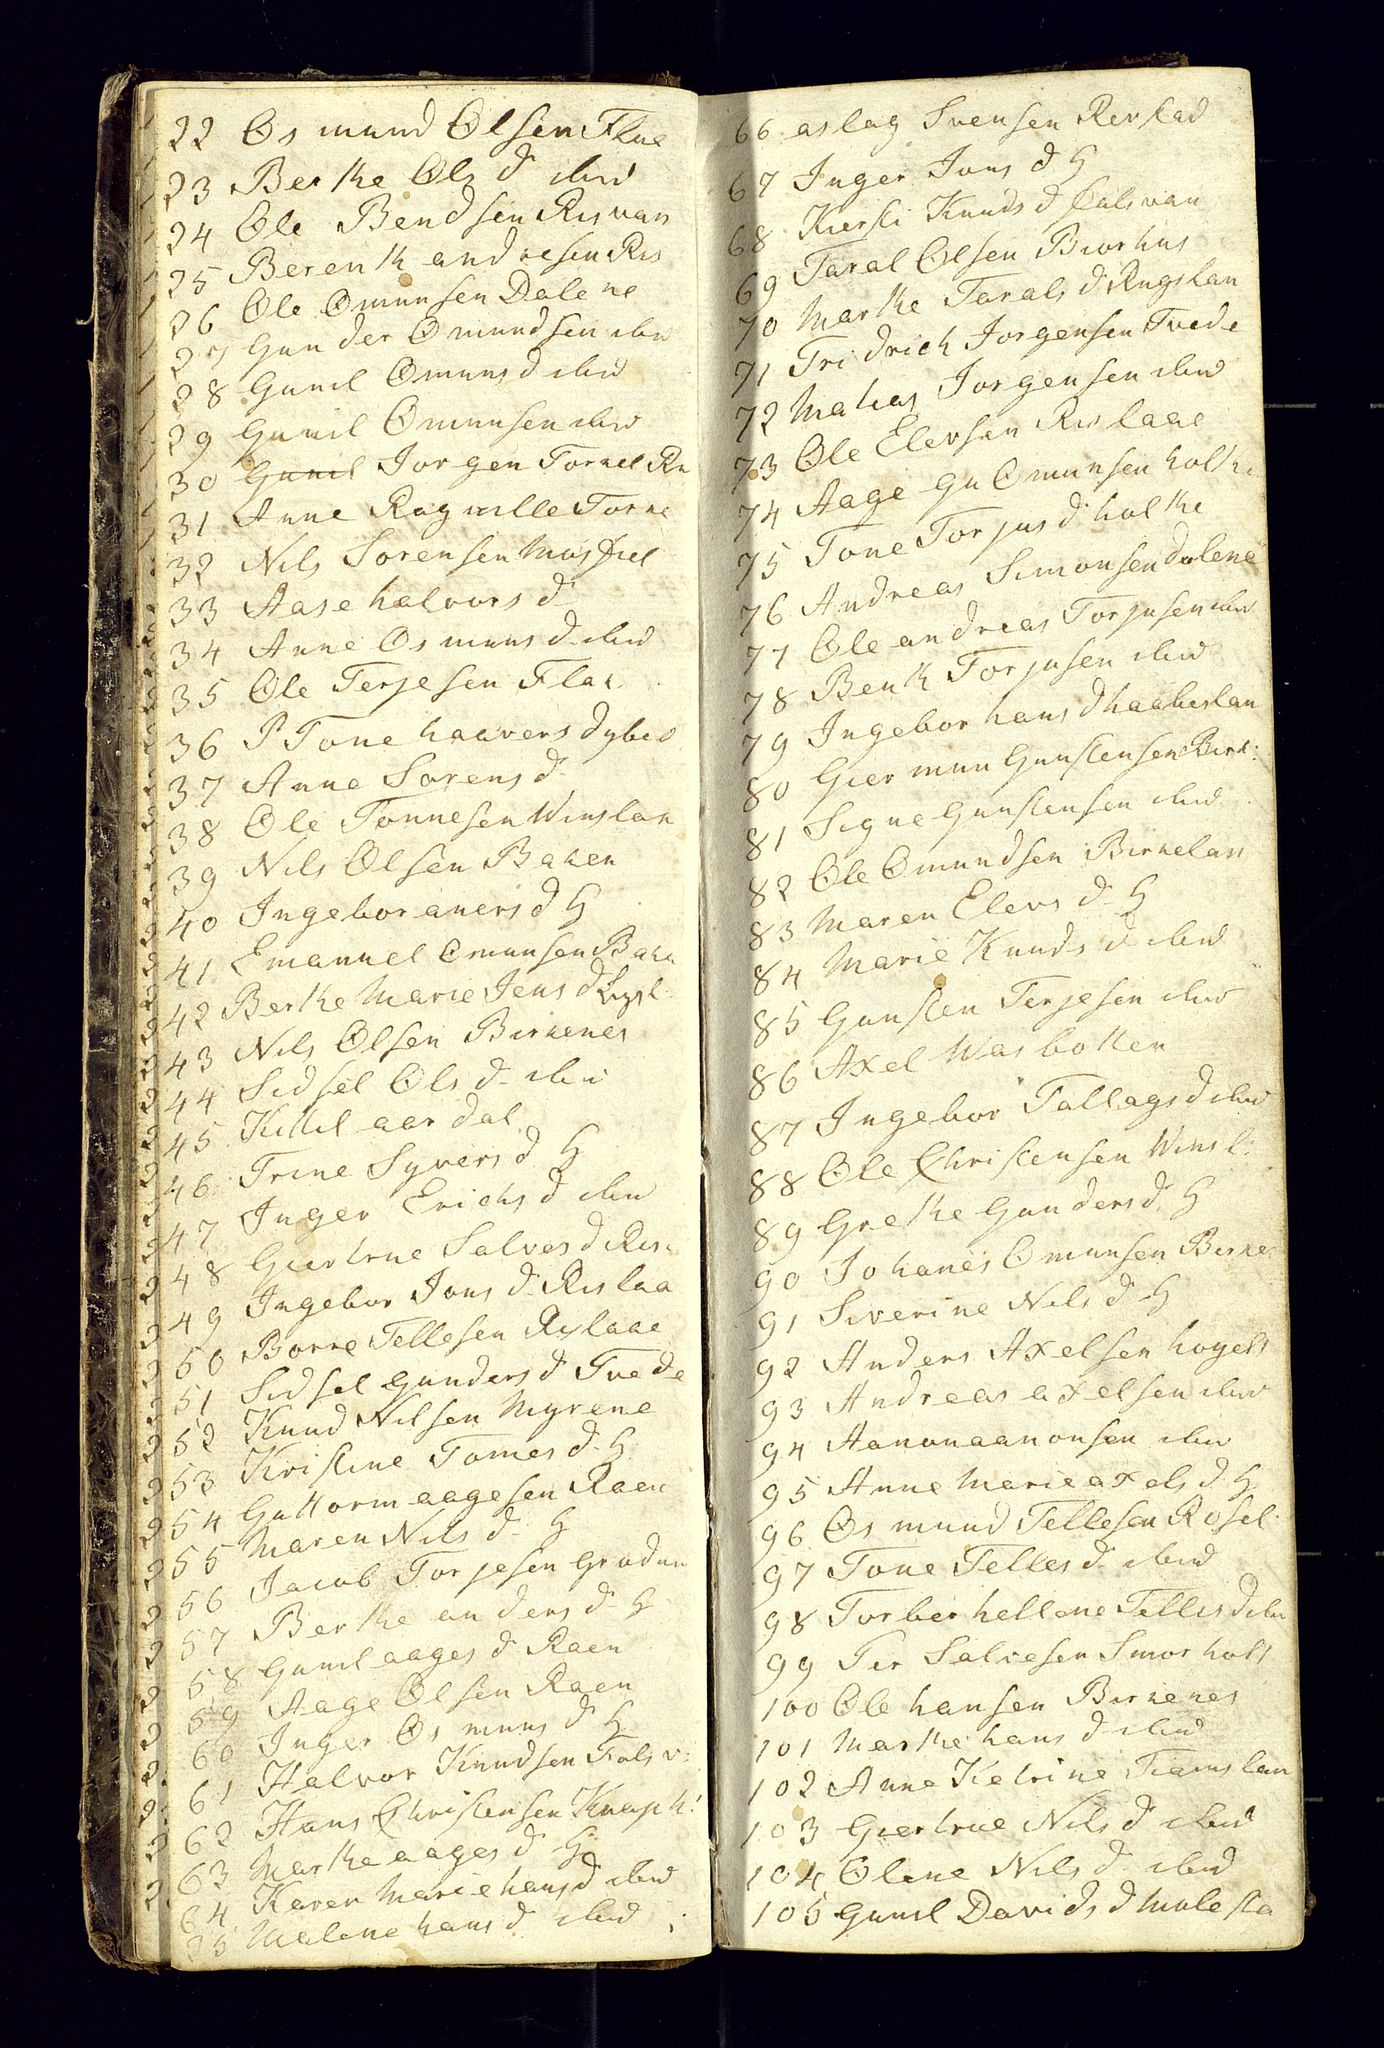 22 Os mund Olsen Flae
23 Berthe Ols d ibid
24 Ole Bendsen Risvan
25 Berenth andresen Ris
26 Ole Omunsen Dalene
27 Gunder Omundsen ibid
28 Gunil Omuns d ibid
29 Gunil Omunsen ibid
30 Gunil Jorgen Tornel Rn
31 Anne Ragnille Torne
32 Nils Sorensen Mosfiel
33 Aase halvors d
34 Anne Osmuns d ibid
35 Ole Terjesen Flak
36 P Tone haavers dybed
37 Anne Sorens d
38 Ole Tonnesen Winslan
39 Nils Olsen Baken
40 Ingebor aners d H
41 Emanuel Omunsen Baken
42 Berthe Marie Jens d
43 Nils Olsen Birkenes
44 Sidsel Ols d ibid
45 Kittil aardal
46 Trine Syvers d H
47 Inger Erichs d ibid
48 Giertrue Salves d Ris
49 Ingebor Jons d Rislaa
50 Borre Tellesen Rylaae
51 Sidsel Gunders d Tvede
52 Knud Nilsen Myrene
53 Kristine Tomes d H
54 Guttorm aagesen Raen
55 Maren Nils d H
56 Jacob Torjesen
57 Berthe anders d H
58 Gunil aages d Raen
59 Aage Olsen Raen
60 Inger Osmuns d H
61 Halvor Knudsen Fals v:
62 Hans Christensen Knaph:
63 Marthe aages d H
64 Karen Marie hans d ibid
65 Malene hans d ibid
66 aslag Svensen Rerslad
67 Inger Jons d H
68 Kirsti Knuds d Falsvan
69 Taral Olsen Biorhus
70 Marthe Tarals d Rugslan
71 Fridrich Jorgensen Tvede
72 Matias Jorgensen ibid
73 Ole Elevsen Rislaae
74 Aage Gu Omunsen holthe
75 Tone Torjus d holthe
76 Andreas Simonsen dalene
77 Ole andreas Torjusen ibid
78 Benth Torjusen ibid
79 Ingebor hans d haabeslan
80 Giermun Gunstensen Birk:
81 Signe Gunstensen ibid
82 Ole Omundsen Birkelan
83 Maren Elevs d H
84 Marie Knuds d ibid
85 Gunsten Terjesen ibid
86 Axel Wasbotten
87 Ingebor Tallags d ibid
88 Ole Christensen Winsl:
89 Grethe Gunders d H
90 Johanes Omunsen Birkes
91 Siverine Nils d H
92 Anders Axelsen hogelt
93 Andreas axelsen ibid
94 Aanonaanonsen ibid
95 Anne Marie axels d H
96 Osmund Tellesen Rosel
97 Tone Telles d ibid
98 Torber hellene Telles d ibi
99 Ter Salvesen Smorholt
100 Ole hansen Birkenes
101 Marthe hans d ibid
102 Anne Ketrine Tamslan
103 Giertrue Nils d ibid
104 Olene Nils d ibid
105 Gunil Davids d Molesta